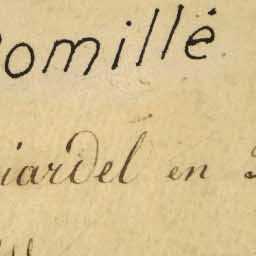 Romillé
iardel en